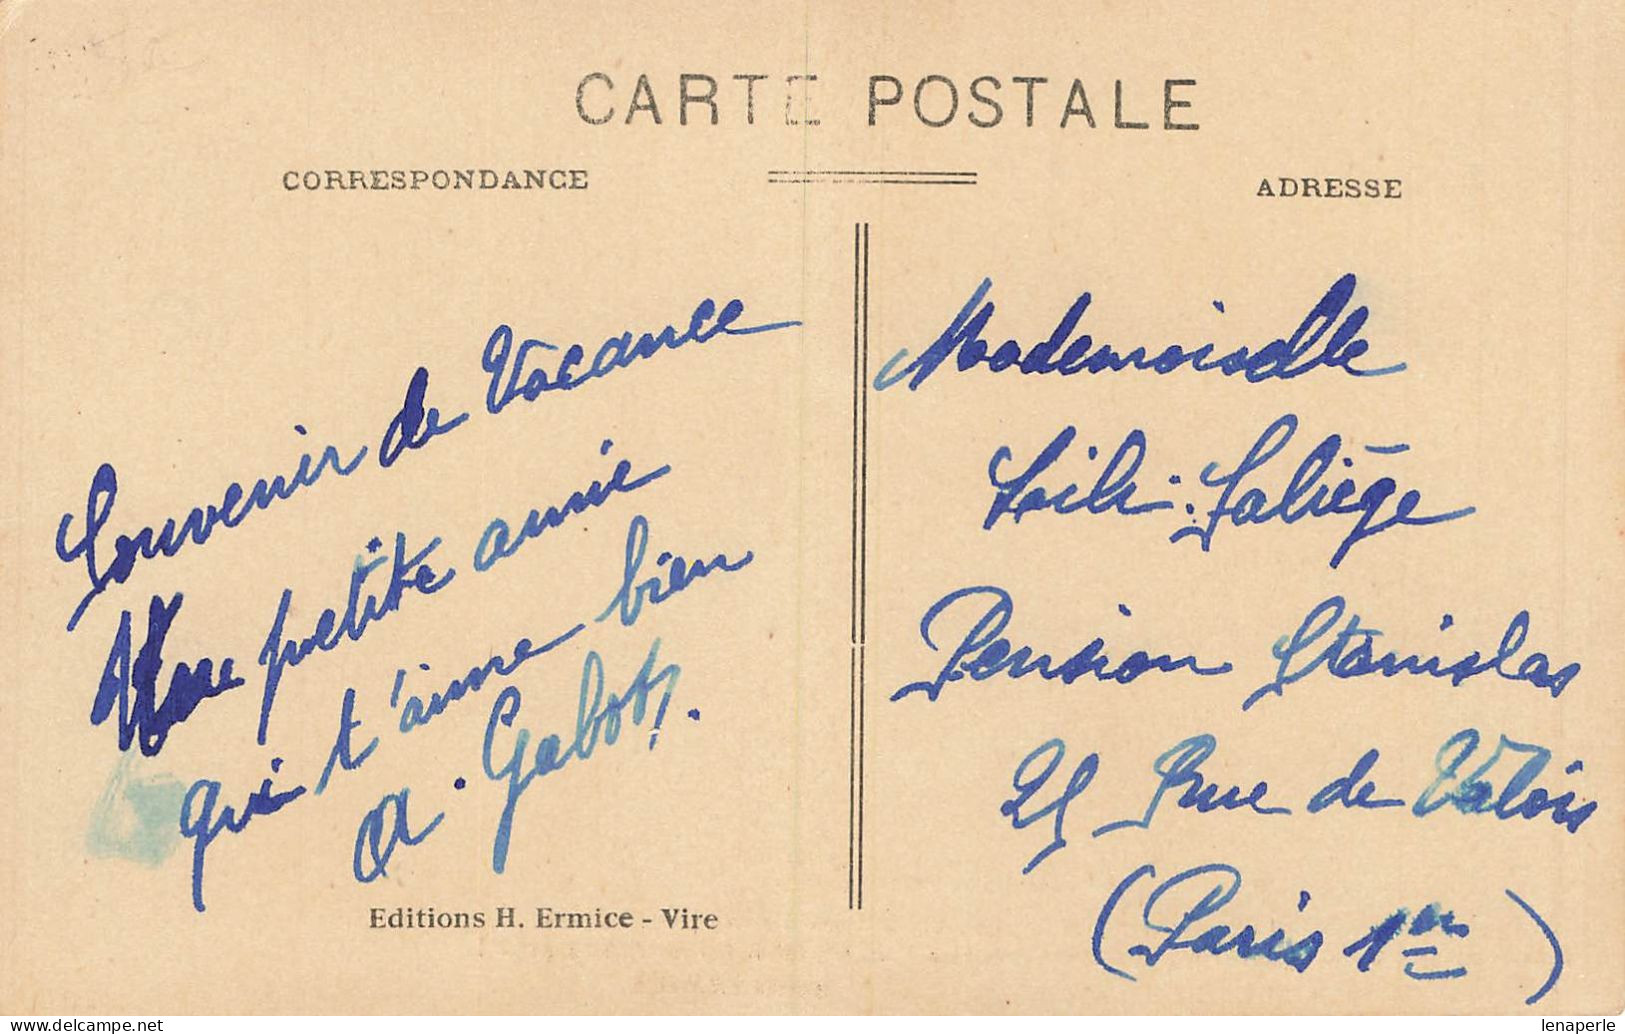 CARTE POSTALE
CORRESPONDANCE
ADRESSE
Souvenir de Vacance
Une petite amie
qui t'aime bien
A. Gabot
Editions H. Ermice - Vire
Mademoiselle
Lili Saliège
Pension Stanislas
25 Rue de Valois
(Paris 1er)
lenaperle